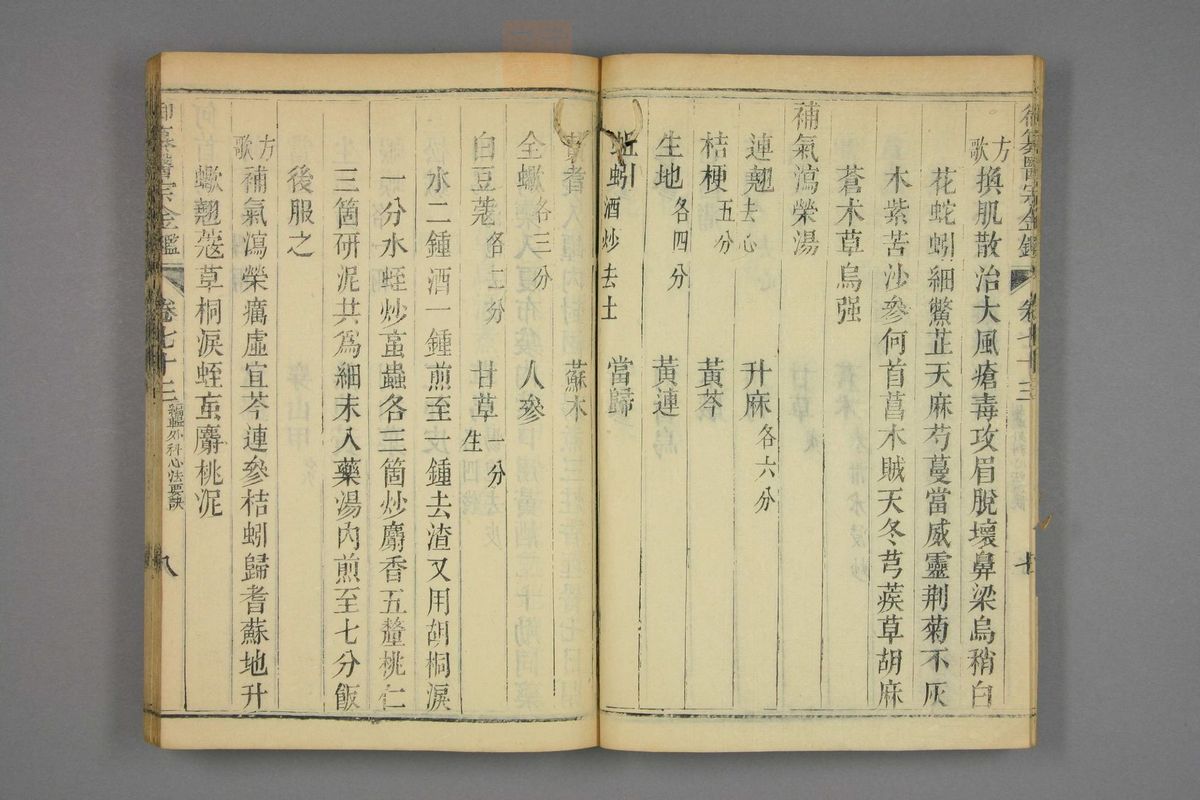 御纂醫宗金鑑 卷七十三 七
方歌 換肌散治大風瘡毒攻眉脫壞鼻梁烏稍白
花蛇蚓細鱉芷天麻芍蔓當威靈荆菊不灰
木紫苦沙參何首菖木賊天冬芎蒺草胡麻
蒼木草烏强
補氣瀉榮湯
連翹去心 升麻各六分
桔梗五分 黃芩
生地各四分 黃連
蚯蚓酒炒去土 當歸
黃耆 蘇木
全蠍各三分 人參
白豆蔻各二分 甘草生一分
水二鍾酒一鍾煎至一鍾去渣又用胡桐淚
一分水蛭炒䖟蟲各三箇炒麝香五釐桃仁
三箇研泥共爲細末入藥湯內煎至七分飯
後服之
方歌 補氣瀉榮癘虛宜芩連參桔蚓歸耆蘇地升
蠍翹蔻草桐淚蛭䖟麝桃泥
御纂醫宗金鑑 卷七十三 編輯外科心法要訣 八